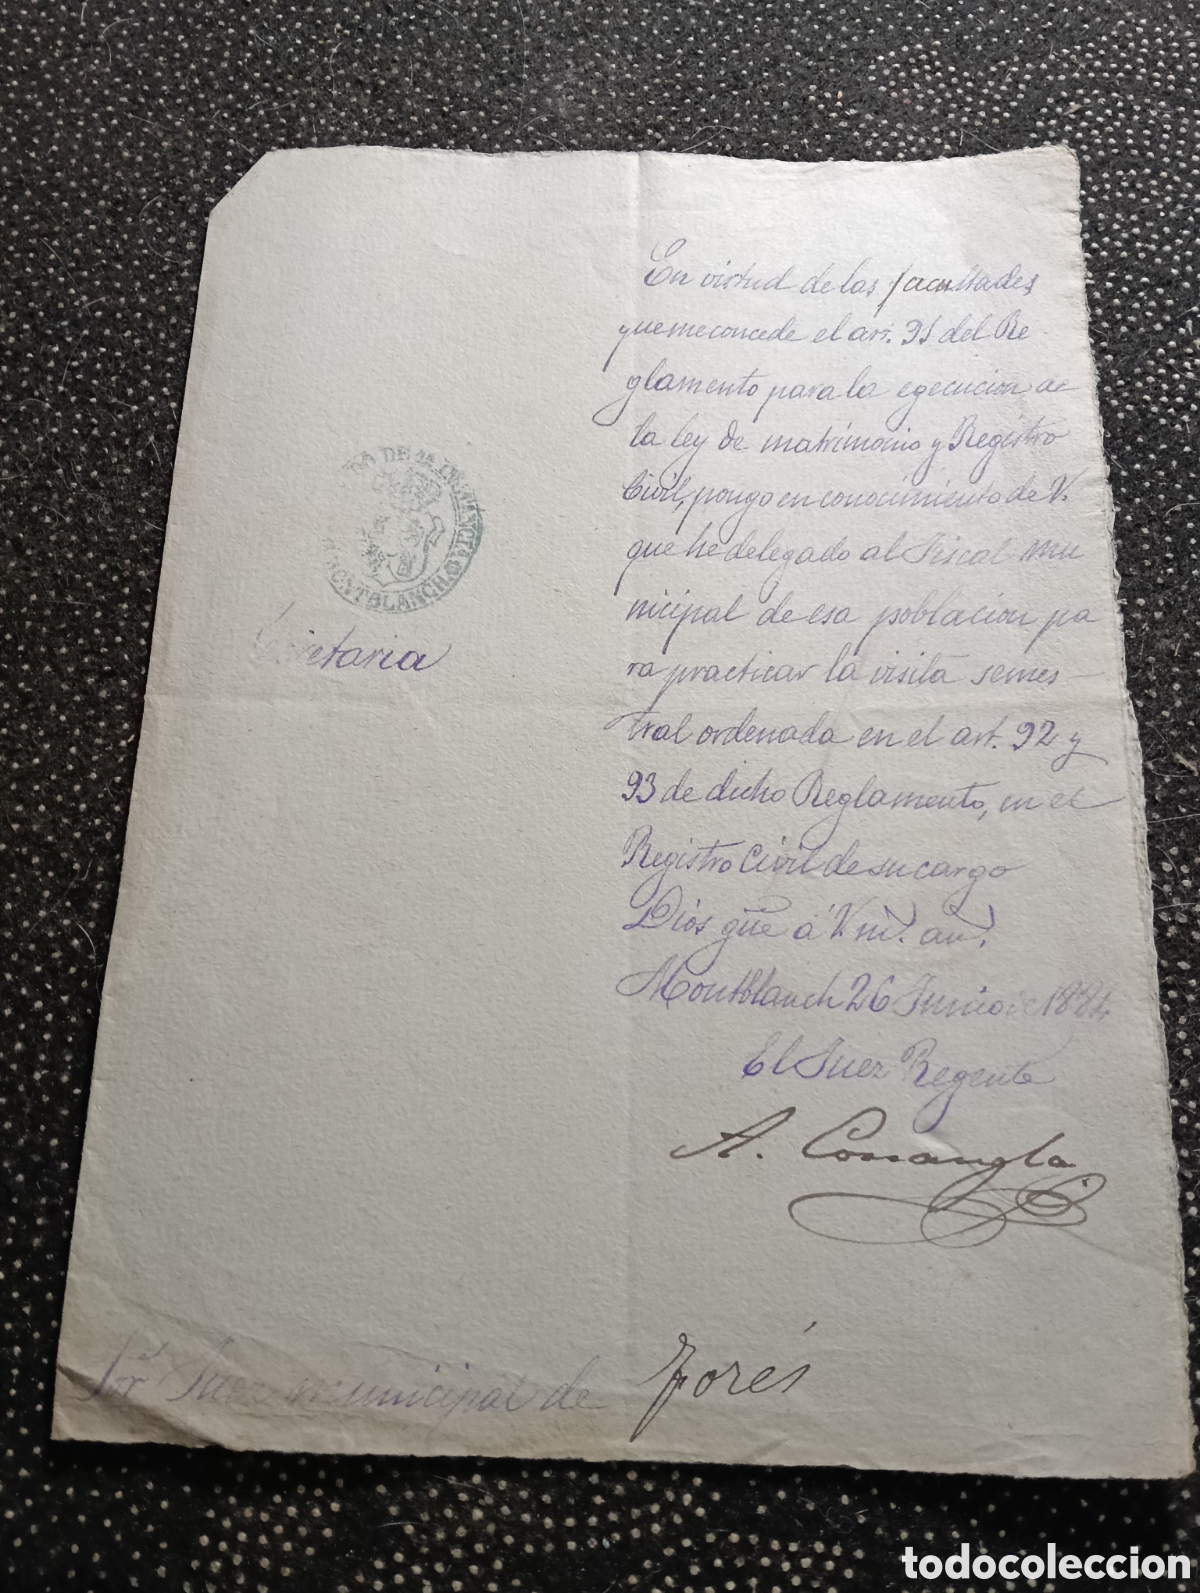 En virtud de las facultades
que me concede el art. 91 del Re
glamento para la egecucion de
la ley de matrimonio y Registro
Civil, pongo en conocimiento de V.
que he delegado al Fiscal mu
nicipal de esa poblacion pa
ra practicar la visita semes
tral ordenada en el art. 92 y
93 de dicho Reglamento, en el
Registro Civil de su cargo
Dios gue á V m. añ.
Montblanch 26 Junio de 188
El Juez Regente
A.
DO DE 1A INSTANCIA
MONTBLANCH
Secretaria
Sor Juez municipal de Forés
todocoleccion